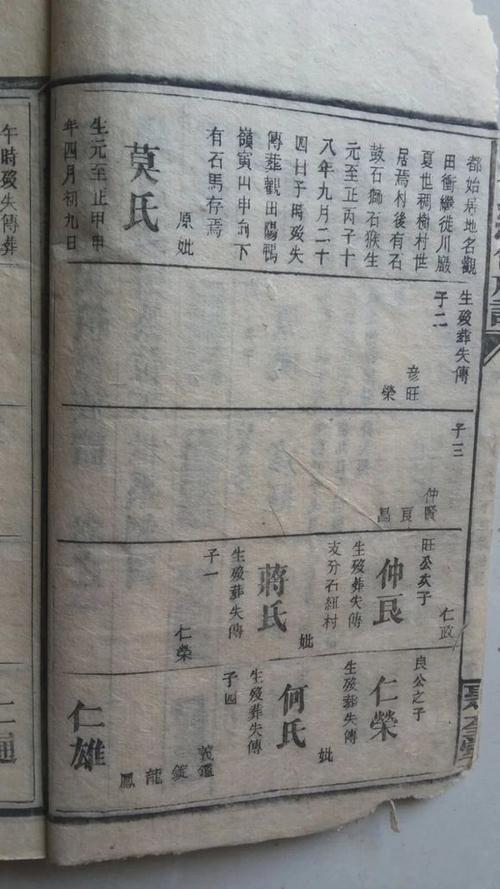 都始居地名觀
田衝繼徙川巖
夏世稠樹村世
居焉村後有石
鼓石獅石猴生
元至正丙子十
八年九月二十
四日子時殁失
傳葬觀田陽鴨
嶺寅山申向下
有石馬存焉
原妣
莫氏
生元至正甲申
年四月初九日
午時殁失傳葬
生殁葬失傳
子二
彦旺
榮
子三
仲賢
良
昌
旺公次子
仁政
仲良
生殁葬失傳
支分石紐村
妣
蔣氏
生殁葬失傳
子一
仁榮
良公之子
仁榮
生殁葬失傳
妣
何氏
生殁葬失傳
子四
義鑑
錠
龍
鳳
仁雄
仁通